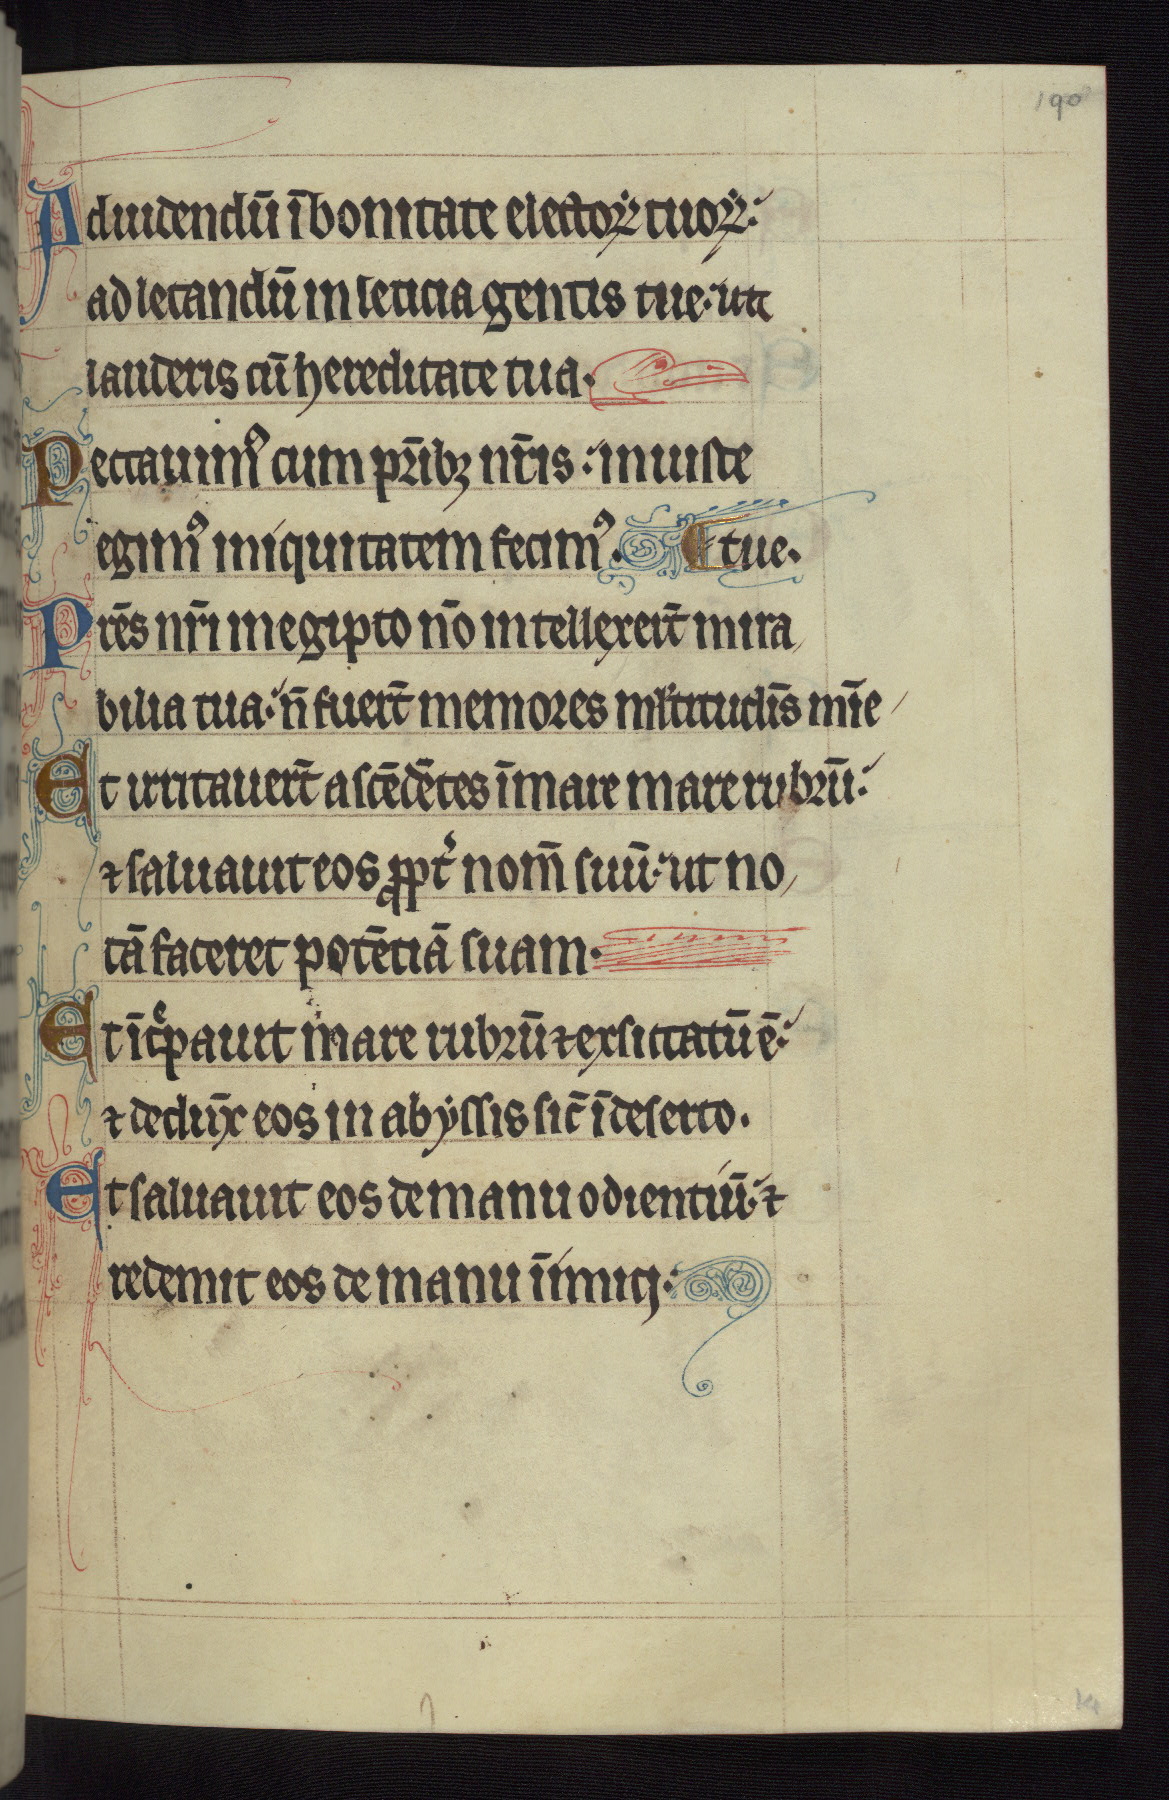 190
Aduidendū ībonitate electoꝝ tuoꝝ:
ad letandū in leticia gentis tue: ut
lauderis cū hereditate tua.
Peccauimꝰ cum pr̄ibꝫ nr̄is: iniuste
egimꝰ iniquitatem fecimꝰ. ¶ tue.
Pr̄es nr̄i in egipto nō intellexer̄t mira
bilia tua: n̄ fuer̄t memores ml̄titudīs mīe
Et irritauer̄t ascēdētes ī mare mare rubrū:
⁊ saluauit eos ꝓpt̓ nom̄ suū: ut no
tā faceret potētiā suam.
Et īcͤpauit mare rubrū ⁊ exsiccatū ē:
⁊ deduẋ eos in abyssis sic̄ ī deserto.
Et saluauit eos de manu odientiū: ⁊
redemit eos de manu inīmicj: